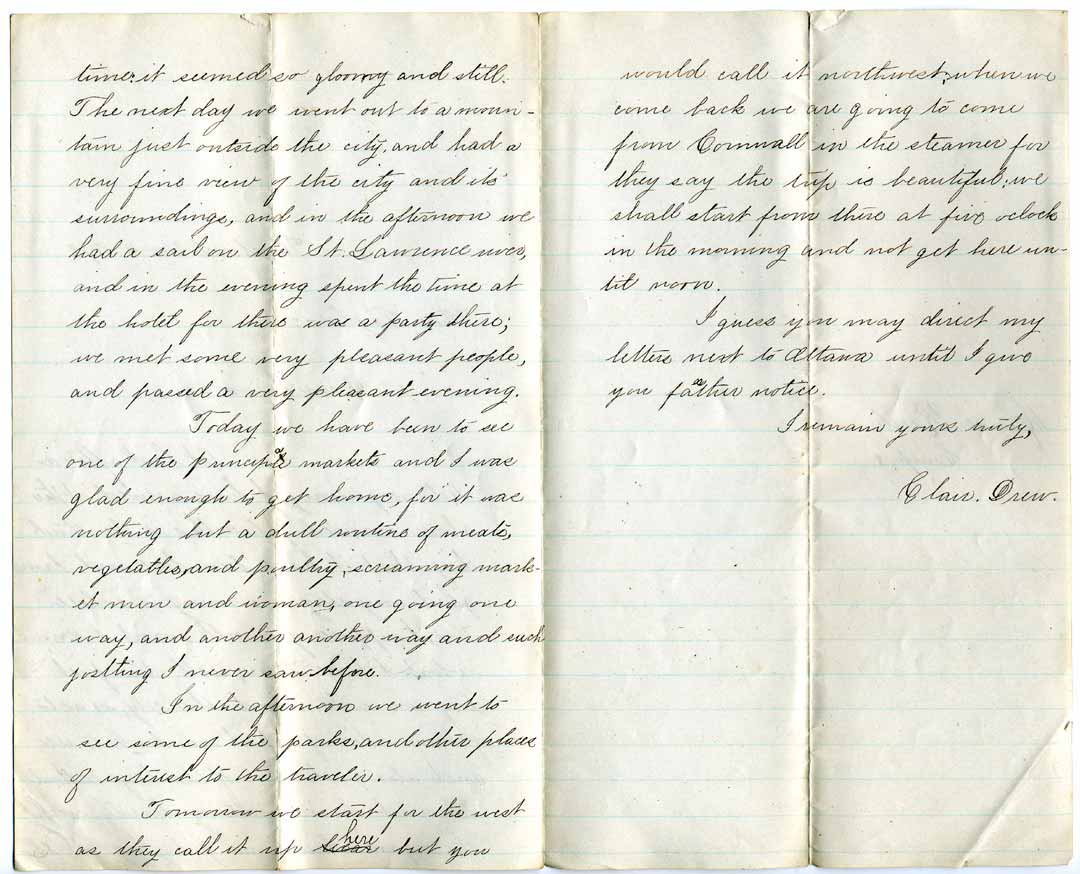 time; it seemed so gloomy and still.
The next day we went out to a moun-
tain just outside the city, and had a
very fine view of the city and its
surroundings, and in the afternoon we
had a sail on the St. Lawrence river,
and in the evening spent the time at
the hotel for there was a party there;
we met some very pleasant people,
and passed a very pleasant evening.
Today we have been to see
one of the principal markets and I was
glad enough to get home, for it was
nothing but a dull routine of meats,
vegetables, and poultry, screaming mark-
et men and woman, one going one
way, and another another way and such
jostting I never saw before.
In the afternoon we went to
see some of the parks, and other places
of interest to the traveler.
Tomorrow we start for the west
as they call it up here but you
would call it northwest; when we
come back we are going to come
from Cornwall in the steamer for
they say the trip is beautiful; we
shall start from there at five oclock
in the morning and not get here un-
til noon.
I guess you may direct my
letters next to Ottawa until I give
you father notice.
I remain yours truly,
Clair. Drew.